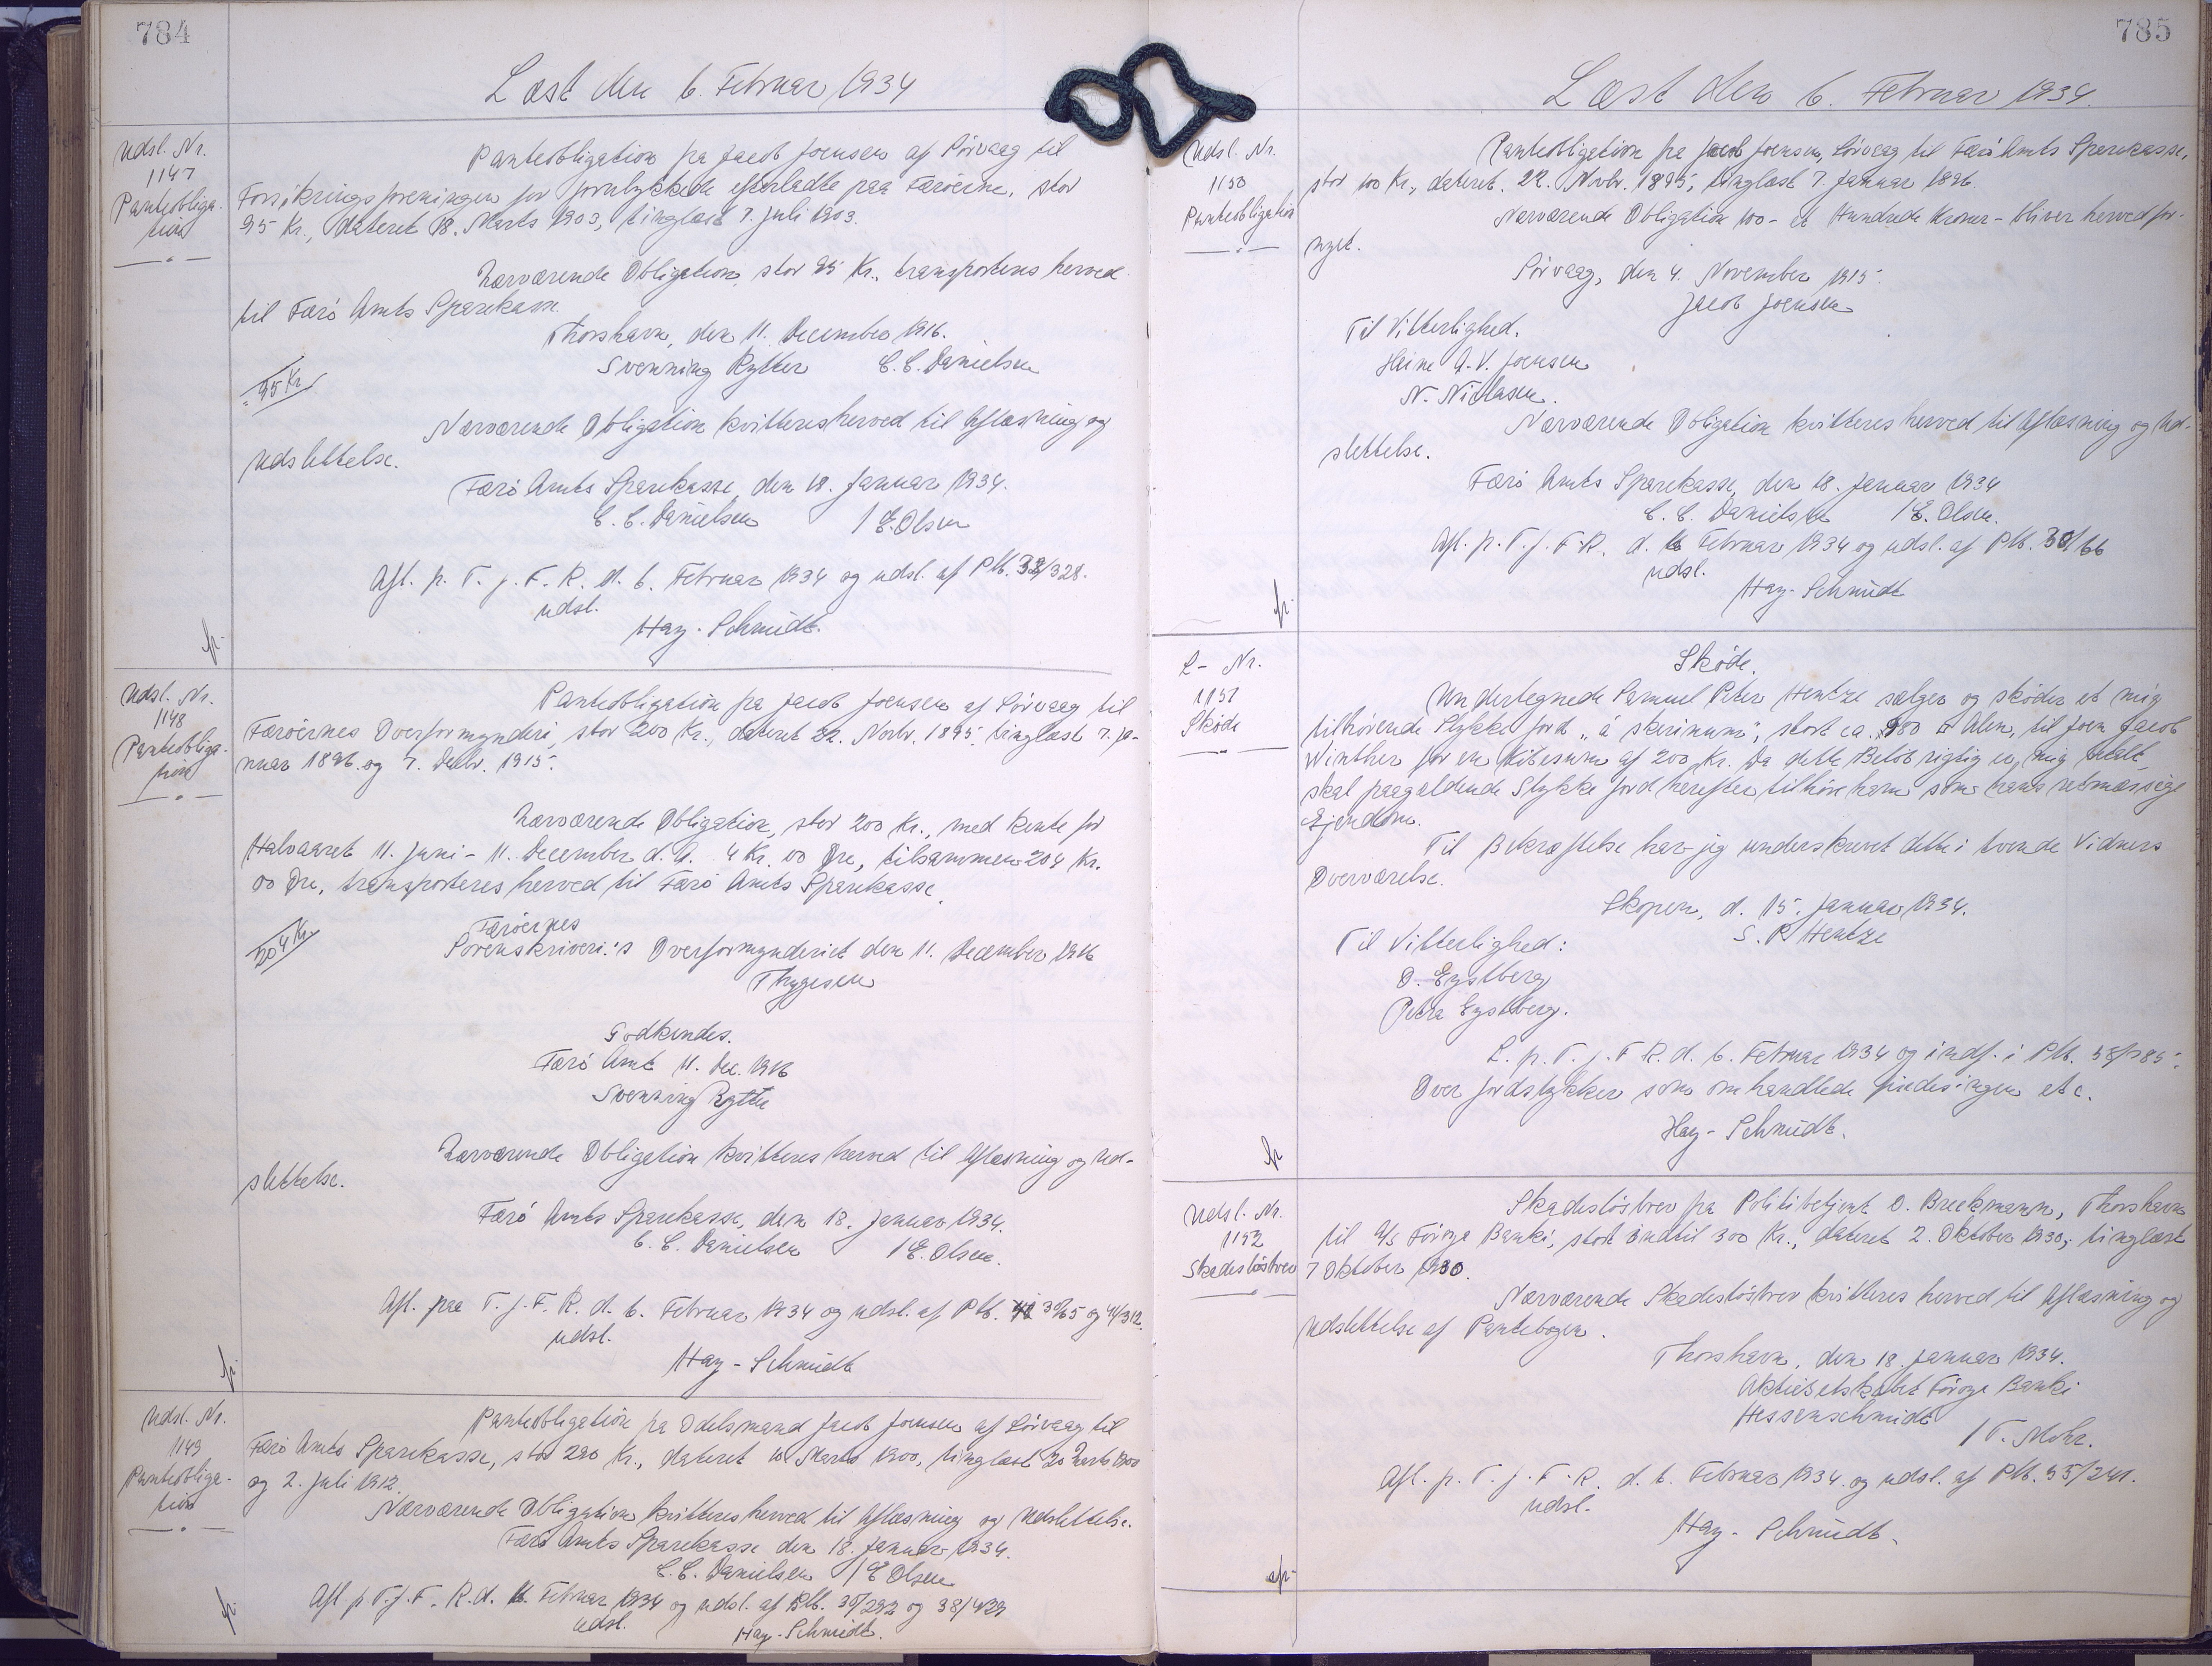 784
Læst den 6. Februar 1934
Udsl. Nr.
1147
Panteobliga-
tion
Panteobligation fra Jacob Joensen af Sörvaag til
Forsikringsforeningen for forulykkede efterladte paa Færöerne, stor
95 Kr., dateret 18. Marts 1903, tinglæst 7. Juli 1903.
Nærværende Obligation, stor 95 Kr., transporteres herved
til Færö Amts Sparekasse.
Thorshavn, den 11. December 1916.
Svenning Rytter C.C. Danielsen
95 Kr
Nærværende Obligation kvitteres herved til Aflæsning og
Udslettelse.
Færö Amts Sparekasse, den 18. Januar 1934.
C.C. Danielsen / E. Olsen
Afl. p. T. f. F. R. d. 6. Februar 1934 og udsl. af Ptb. 32/328.
udsl.
Hay-Schmidt.
fr.
Udsl. Nr.
1148
Panteobliga-
tion
Panteobligation fra Jacob Joensen af Sörvaag til
Færöernes Overformynderi, stor 200 Kr., dateret 22. Novbr. 1895, tinglæst 7. Ja-
nuar 1896 og 7. Decbr. 1915.
Nærværende Obligation, stor 200 Kr., med Rente for
Halvaaret 11. Juni - 11. December d. A. 4 Kr. 00 Øre, tilsammen 204 Kr.
00 Øre, transporteres herved til Færö Amts Sparekasse.
204 Kr.
Færöernes
Sorenskriveri.'s Overformynderiet den 11. December 1916
Thygesen
Godkendes.
Færö Amt 11. Dec. 1916
Svenning Rytter
Nærværende Obligation kvitteres herved til Aflæsning og Ud-
slettelse.
Færö Amts Sparekasse, den 18. Januar 1934.
C.C. Danielsen / E. Olsen.
Afl. paa T. f. F. R. d. 6. Februar 1934 og udsl. af Ptb. 30/65 og 41/312.
udsl.
Hay-Schmidt
fr.
Udsl. Nr.
1149
Panteobliga-
tion
Panteobligation fra Odelsmand Jacob Joensen af Sörvaag til
Færö Amts Sparekasse, stor 290 Kr., dateret 10 Marts 1900, tinglæst 20 Marts 1900
og 2. Juli 1912.
Nærværende Obligation kvitteres herved til Aflæsning og Udslettelse.
Færö Amts Sparekasse den 18. Januar 1934.
C.C. Danielsen / E Olsen
Afl. p T. f. F. R. d. 6. Februar 1934 og udsl. af Ptb. 30/292 og 38/429
udsl.
Hay-Schmidt.
fr.
785
Læst den 6. Februar 1934.
Udsl. Nr.
1150
Panteobligation
Panteobligation fra Jacob Joensen, Sörvaag til Færö Amts Sparekasse,
stor 100 Kr., dateret. 22. Novbr. 1895, tinglæst 7. Januar 1896.
Nærværende Obligation 100 - et Hundrede Kroner - bliver herved for-
nyet.
Sörvaag, den 4. November 1915.
Jacob Joensen
Til Vitterlighed.
Heine A.V. Joensen
N. Niclasen.
Nærværende Obligation kvitteres herved til Aflæsning og Ud-
slettelse.
Færö Amts Sparekasse, den 18. Januar 1934
C.C. Danielsen / E. Olsen.
Afl. p. T. f. F. R. d. 6 Februar 1934 og udsl. af Ptb. 30/66
udsl.
Hay-Schmidt
fr.
L- Nr.
1151
Sköde
Sköde.
Undertegnede Samuel Peter Hentze sælger og sköder et mig
tilhörende Stykke Jord "á skerinum", stort ca. 980 □ Alen, til Joen Jacob
Winther for en Köbesum af 200 Kr. Da dette Belöb rigtig er mig betalt,
skal paagældende Stykke Jord herefter tilhöre ham som hans retmæssige
Ejendom.
Til Bekræftelse har jeg underskrevet dette i tvende Vidners
Overværelse.
Skopen, d. 15. Januar 1934.
S. P. Hentze
Til Vitterlighed:
O. Eystberg
Petra Eystberg.
L. p. T. f. F. R. d. 6. Februar 1934 og indf. i Ptb. 58/785.
Over Jordstykker som omhandlede findes ingen etc.
Hay-Schmidt.
fr
Udsl. Nr.
1152
Skadeslösbrev
Skadeslösbrev fra Politibetjent O. Breckmann, Thorshavn
til A/s Föroya Banki, stort indtil 300 Kr., dateret 2. Oktober 1930, tinglæst
7 Oktober 1930.
Nærværende Skadeslösbrev kvitteres herved til Aflæsning og
Udslettelse af Pantebogen.
Thorshavn, den 18. Januar 1934.
Aktieselskabet Föroya Banki
Hessenschmidt
/ T. Mohr.
Afl. p. T. f. F. R. d. 6. Februar 1934 og udsl. af Ptb. 55/241.
udsl.
Hay-Schmidt.
fr